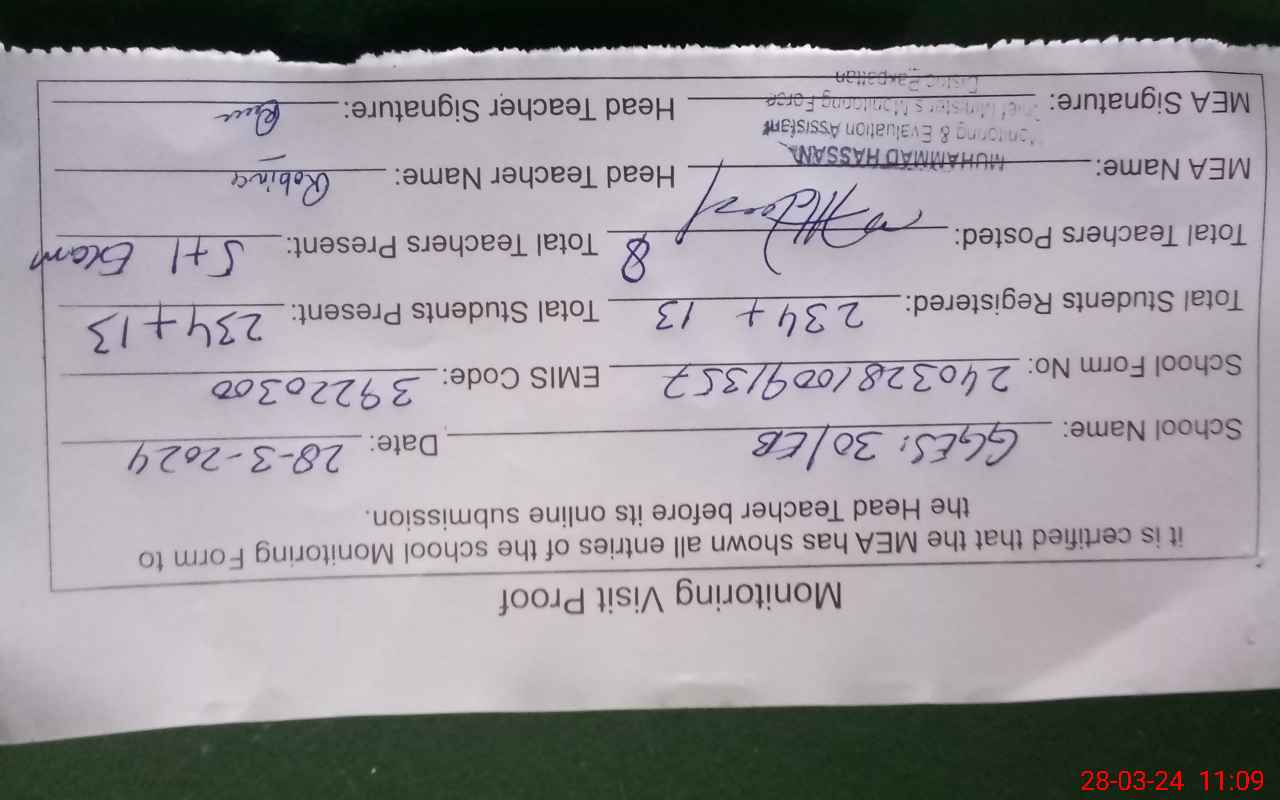 Monitoring Visit Proof
it is certified that the MEA has shown all entries of the school Monitoring Form to
the Head Teacher before its online submission.
School Name: GGES: 30/EB Date: 28-3-2024
School Form No: 24032810091357 EMIS Code: 39220300
Total Students Registered: 234 + 13 Total Students Present: 234 + 13
Total Teachers Posted: 8 Total Teachers Present: 5+1 Exam
MEA Name: MUHAMMAD HASSAN Head Teacher Name: Robina
Monitoring & Evaluation Assistant
MEA Signature: Chief Minister's Monitoring Force Head Teacher Signature:
District Pakpattan
28-03-24 11:09